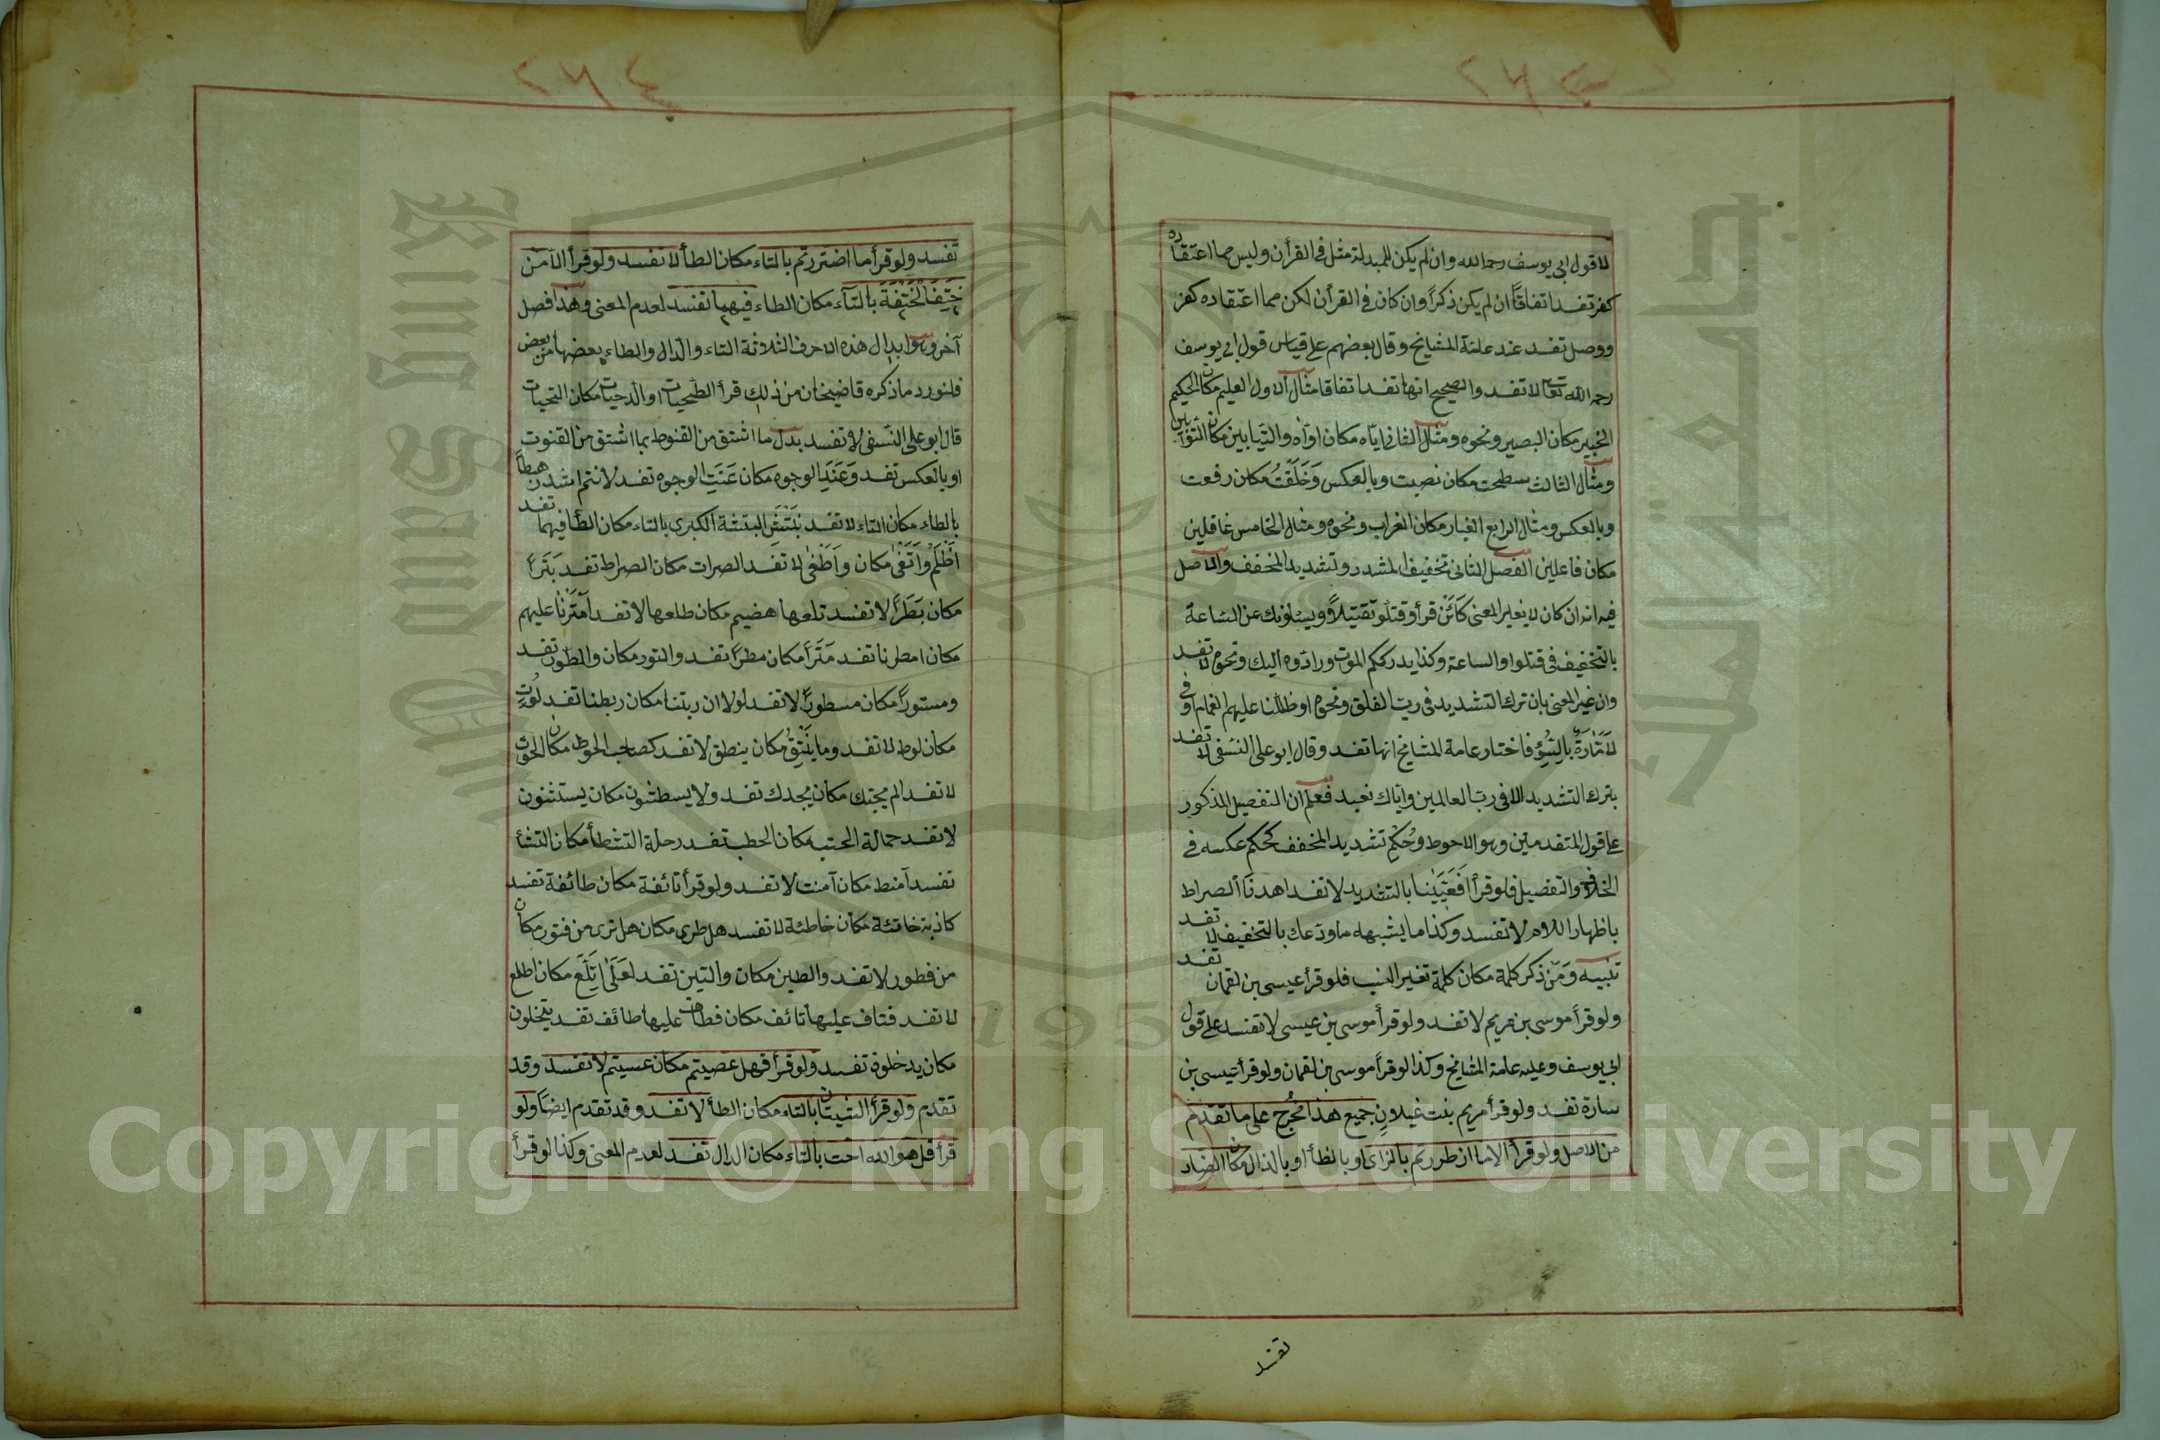 لا قول ابي يوسف رحمه الله وان لم يكن للمبدلة مثل في القرأن وليس مما اعتقاده
كفر تفسد اتفاقاً ان لم يكن ذكراً وان كان في القرأن لكن مما اعتقاده كفر
ووصل تفسد عند عامة المشايخ وقال بعضهم على قياس قول ابي يوسف
رحمه الله تعالى لا تفسد والصحيح انها تفسد اتفاقا مثال الاول العليم مكان الحكيم
الخبير مكان البصير ونحوه ومثال الثاني اياه مكان اواه والتيابين مكان التوابين
ومثال الثالث سطحت مكان نصبت وبالعكس وخلقت مكان رفعت
وبالعكس ومثال الرابع الغبار مكان الغراب ونحوه ومثال الخامس غافلين
مكان فاعلين الفصل الثاني تخفيف المشدد وتشديد المخفف والاصل
فيه انه ان كان لا يغير المعنى كان قرأ وقتلو تقتيلاً ويسئلونك عن الساعة
بالتخفيف في قتلوا والساعة وكذا يدرككم الموت ورادوه اليك ونحوه لا تفسد
وان غير المعنى بان ترك التشديد في رب الفلق ونحوه او ظللنا عليهم الغمام او في
لأمارة بالسوء فاختار عامة المشايخ انها تفسد وقال ابو على النسفى لا تفسد
بترك التشديد الا في رب العالمين واياك نعبد فعلم ان التفصيل المذكور
على قول المتقدمين وهو الاحوط وحكم تشديد المخفف كحكم عكسه في
الخلاف والتفصيل فلو قرأ افعيينا بالتشديد لا تفسد اهدنا الصراط
باظهار اللام لا تفسد وكذا ما يشبهه ما ودعك بالتخفيف لا تفسد
تنبيه ومن ذكر كلمة مكان كلمة تغير النسب فلو قرأ عيسى بن لقمان تفسد
ولو قرأ موسى بن مريم لا تفسد ولو قرأ موسى بن عيسى لا تفسد على قول
ابي يوسف وعليه عامة المشايخ وكذا لو قرأ موسى بن لقمان ولو قرأ عيسى بن
سارة تفسد ولو قرأ مريم بنت غيلان جميع هذا مخرج على ما تقدم
من الاصل ولو قرأ الا ما اضطررتم بالزاى او بالظأ او بالذال مكان الضاد
تفسد
تفسد ولو قرأ ما اضتررتم بالتاء مكان الطأ لا تفسد ولو قرأ الا من
ختف الختفة بالتآء مكان الطاء فيهما تفسد لعدم المعنى وهذا فصل
آخر وهو ابدال هذه الاحرف الثلاثة التاء والدال والطاء بعضها من بعض
فلنورد ما ذكره قاضيخان من ذلك قرأ الطحيات او الدحيات مكان التحيات
قال ابو على النسفى لا تفسد بدل ما اشتق من القنوط بما اشتق من القنوت
او بالعكس تفسد وعند الوجوه مكان عنت الوجوه تفسد لأنتم اشد رهبطاً
بالطاء مكان التاء لا تفسد نبتش البتشة الكبرى بالتاء مكان الطأ فيهما تفسد
اظلم واتغى مكان واطغى لا تفسد الصرات مكان الصراط تفسد بتراً
مكان بطراً لا تفسد تلعها هضيم مكان طلعها لا تفسد امترنا عليهم
مكان امطرنا تفسد متراً مكان مطراً تفسد والتور مكان والطور تفسد
ومستوراً مكان مسطوراً لا تفسد لولا ان ربتنا مكان ربطنا تفسد لوت
مكان لوط لا تفسد وما ينتق مكان ينطق لا تفسد كصاحب الحوط مكان الحوت
لا تفسد الم يجتك مكان يجدك تفسد ولا يسطثنون مكان يستثنون
لا تفسد حمالة الحتب مكان الحطب تفسد رحلة الشطأ مكان الشتأ
تفسد آمنط مكان آمنت لا تفسد ولو قرأ تائفة مكان طائفة تفسد
كاذبة خاتئة مكان خاطئة لا تفسد هل طرى مكان هل ترى من فتور مكان
من فطور لا تفسد والطين مكان والتين تفسد لعلى اتلع مكان اطلع
لا تفسد فتاف عليها تائف مكان فطاف عليها طائف تفسد يتخلون
مكان يدخلون تفسد ولو قرأ فهل عصيتم مكان عسيتم لا تفسد وقد
تقدم ولو قرأ الشيتان بالتاء مكان الطأ لا تفسد وقد تقدم ايضاً ولو
قرأ قل هو الله احت بالتاء مكان الدال تفسد لعدم المعنى وكذا لو قرأ